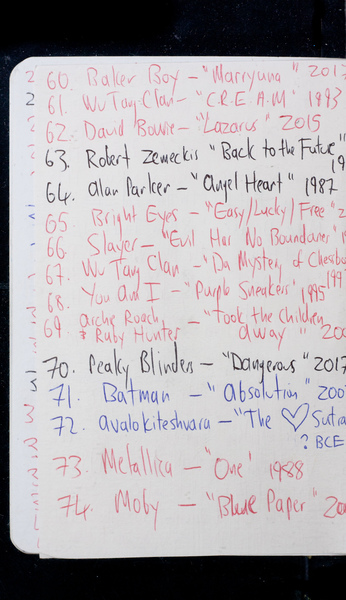 60. Baker Boy - "Marryuna" 2017
61. Wu Tang Clan - "C.R.E.A.M" 1993
62. David Bowie - "Lazarus" 2015
63. Robert Zemeckis "Back to the Future"
19
64. Alan Parker - "Angel Heart" 1987
65. Bright Eyes - "Easy/Lucky/Free" 2
66. Slayer - "Evil Has No Boundaries"
67. Wu Tang Clan - "Da Mystery of Chessbo
199
68. You Am I - "Purple Sneakers" 1995
69. Archie Roach "Took the Children
& Ruby Hunter - away" 200
70. Peaky Blinders - "Dangerous" 2017
71. Batman - "Absolution" 200
72. Avalokiteshvara - "The ♡ Sutra
? BCE
73. Metallica - "One" 1988
74. Moby - "Blue Paper" 20